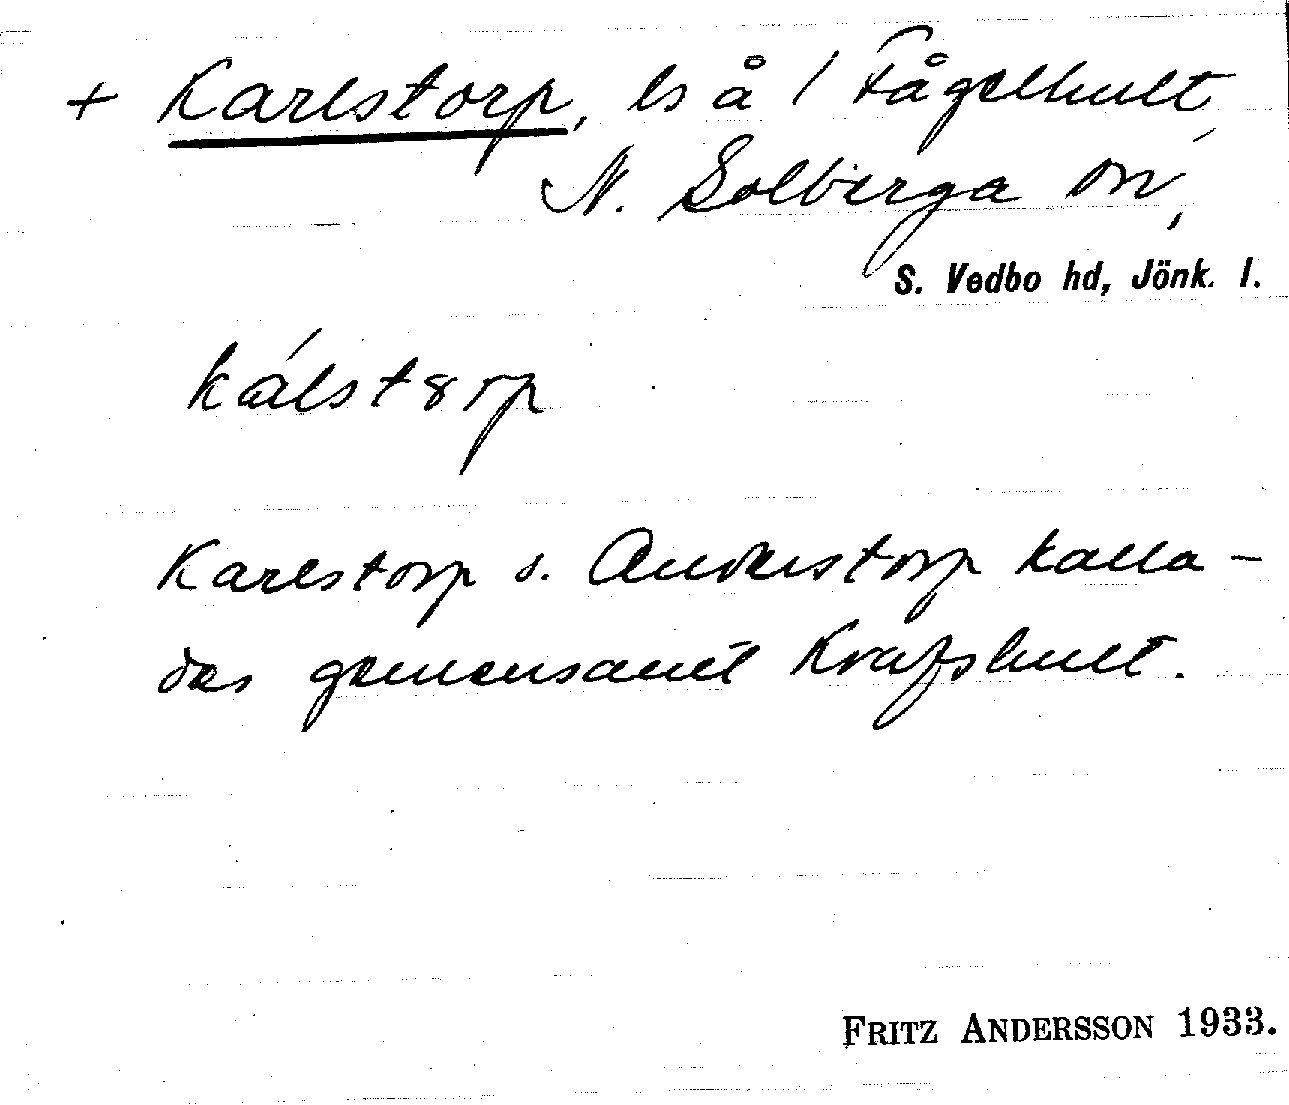 + Karlstorp, ls å 1 Fågelhult,
N. Solberga sn,
S. Vedbo hd, Jönk. l.
kálstorp
Karlstorp o. Anderstorp kalla-
des gemensamt Krafshult.
FRITZ ANDERSSON 1933.